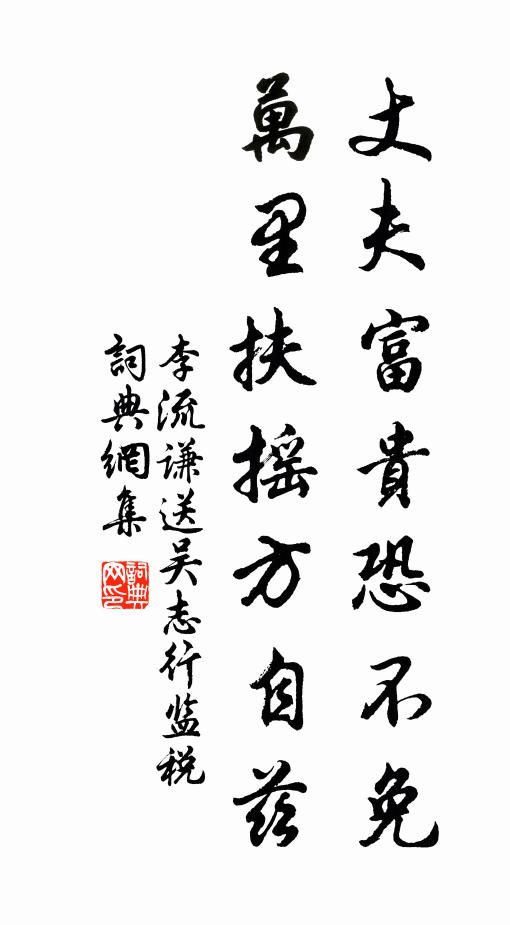 丈夫富貴恐不免
萬里扶摇方自兹
李流谦送吴志行监税
詞典網集
詞典
网印